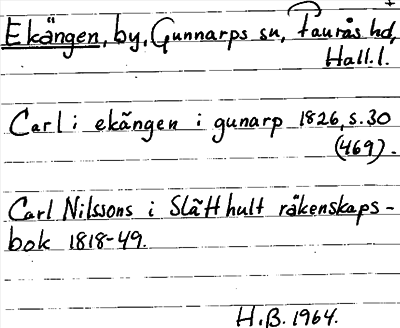 Ekängen, by, Gunnarps sn, Faurås hd,
Hall. l.
Carl i ekängen i gunarp 1826, s. 30
(469).
Carl Nilssons i Slätthult räkenskaps-
bok 1818-49.
H.B. 1964.